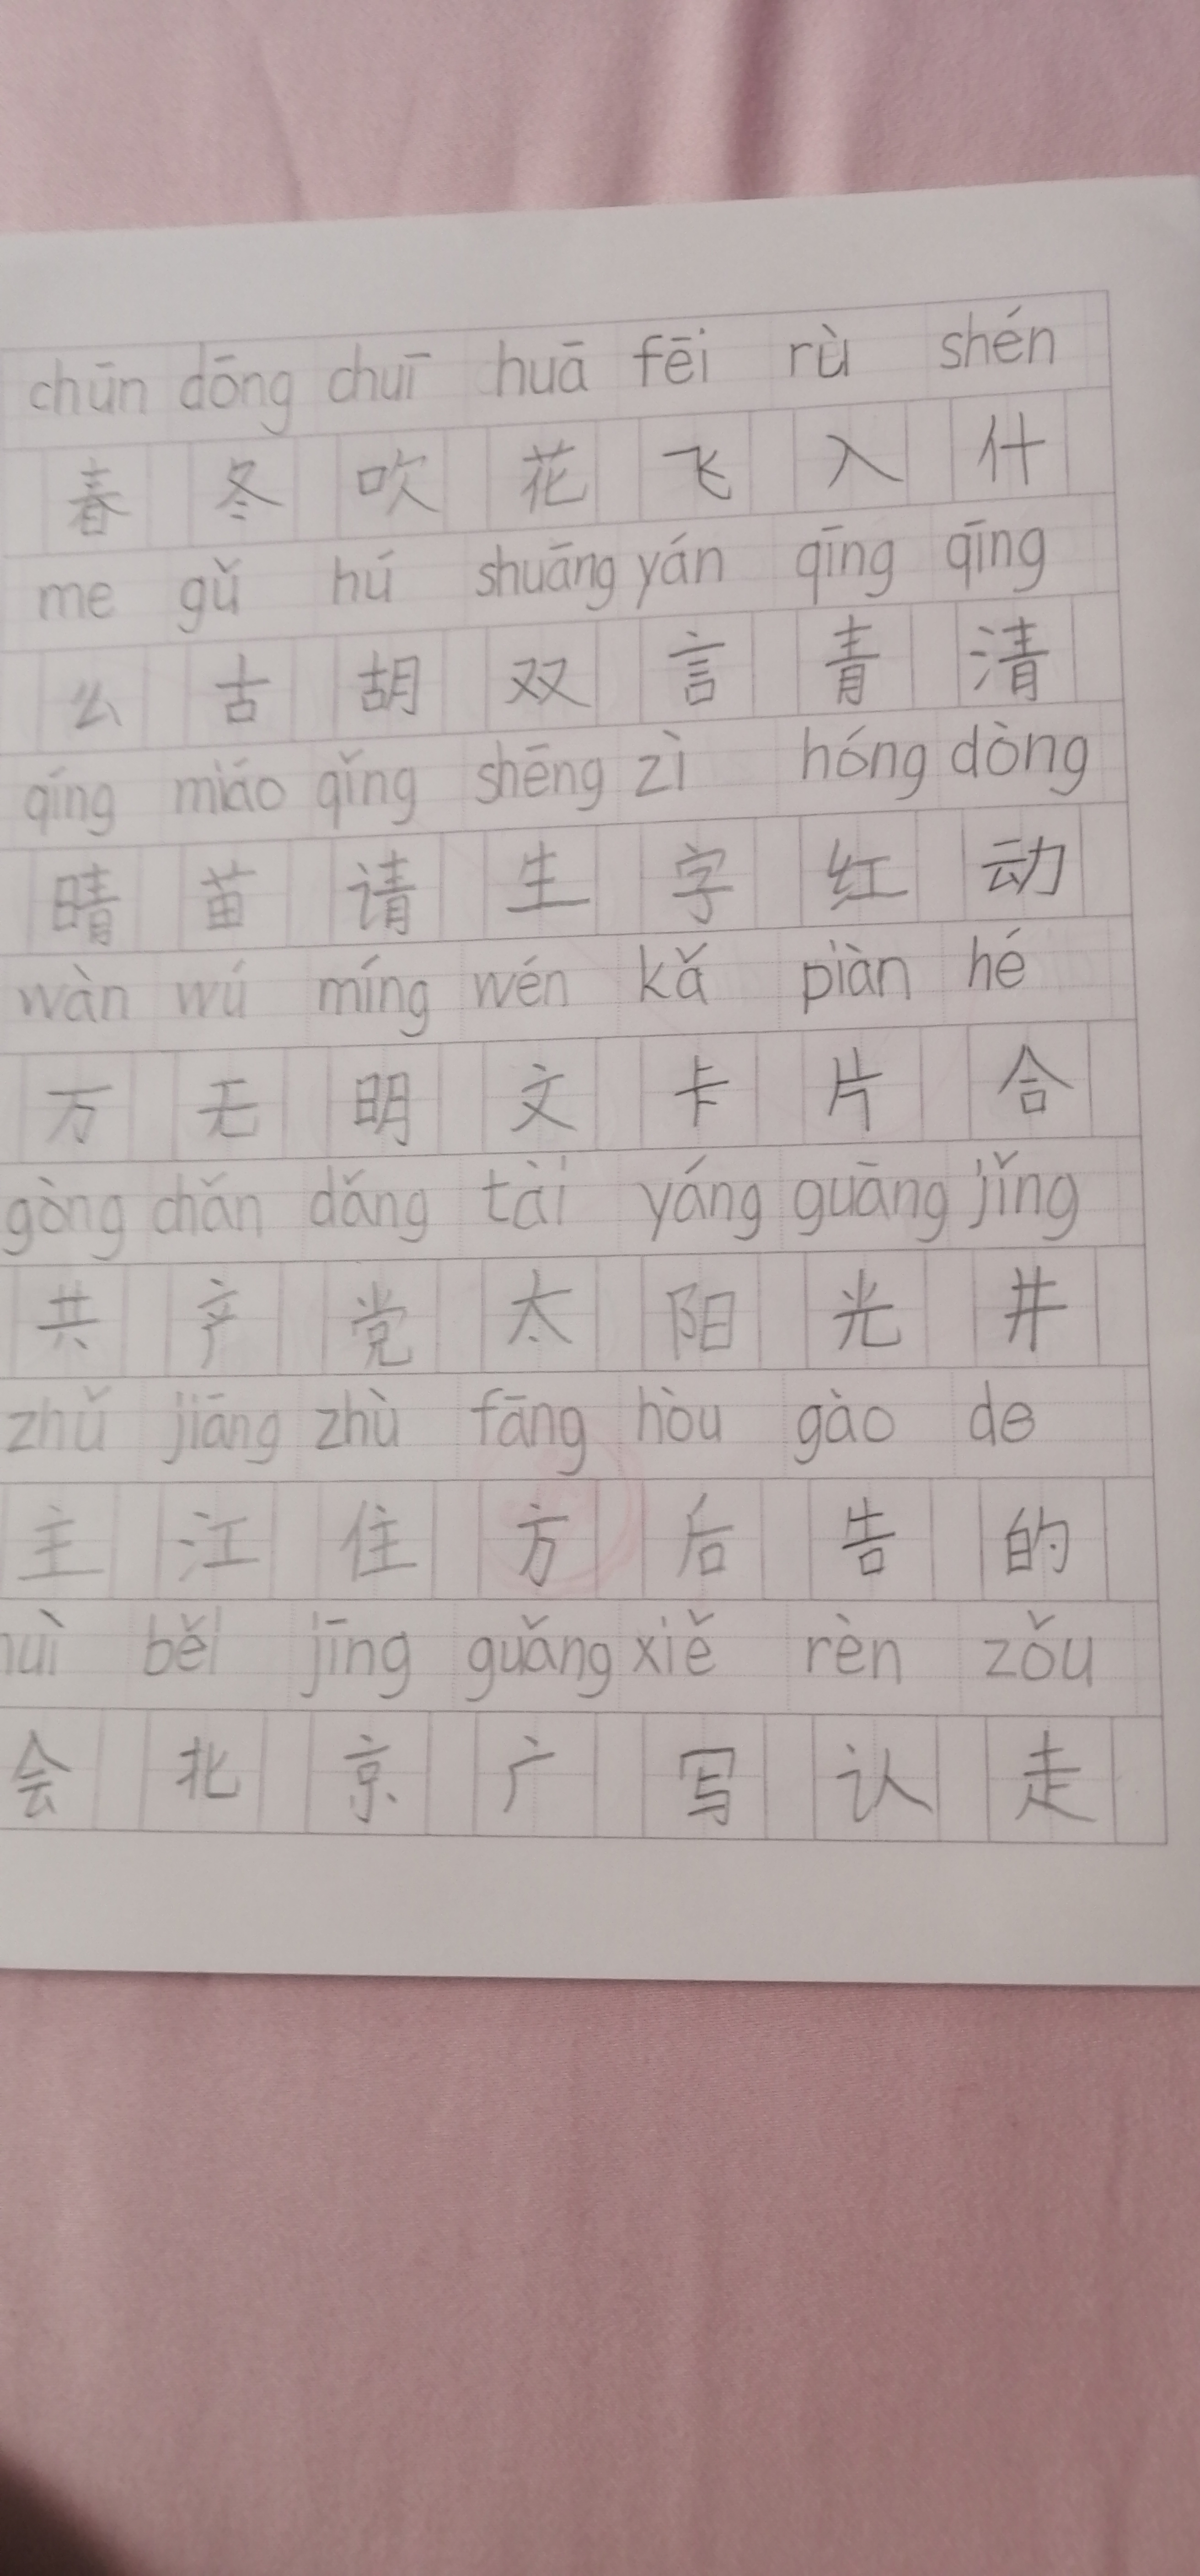 chūn dōng chuī huā fēi rù shén
春 冬 吹 花 飞 入 什
me gǔ hú shuāng yán qīng qīng
么 古 胡 双 言 青 清
qíng miáo qǐng shēng zì hóng dòng
晴 苗 请 生 字 红 动
wàn wú míng wén kǎ piàn hé
万 无 明 文 卡 片 合
gòng chǎn dǎng tài yáng guāng jǐng
共 产 党 太 阳 光 井
zhǔ jiāng zhù fāng hòu gào de
主 江 住 方 后 告 的
huì běi jīng guǎng xiě rèn zǒu
会 北 京 广 写 认 走